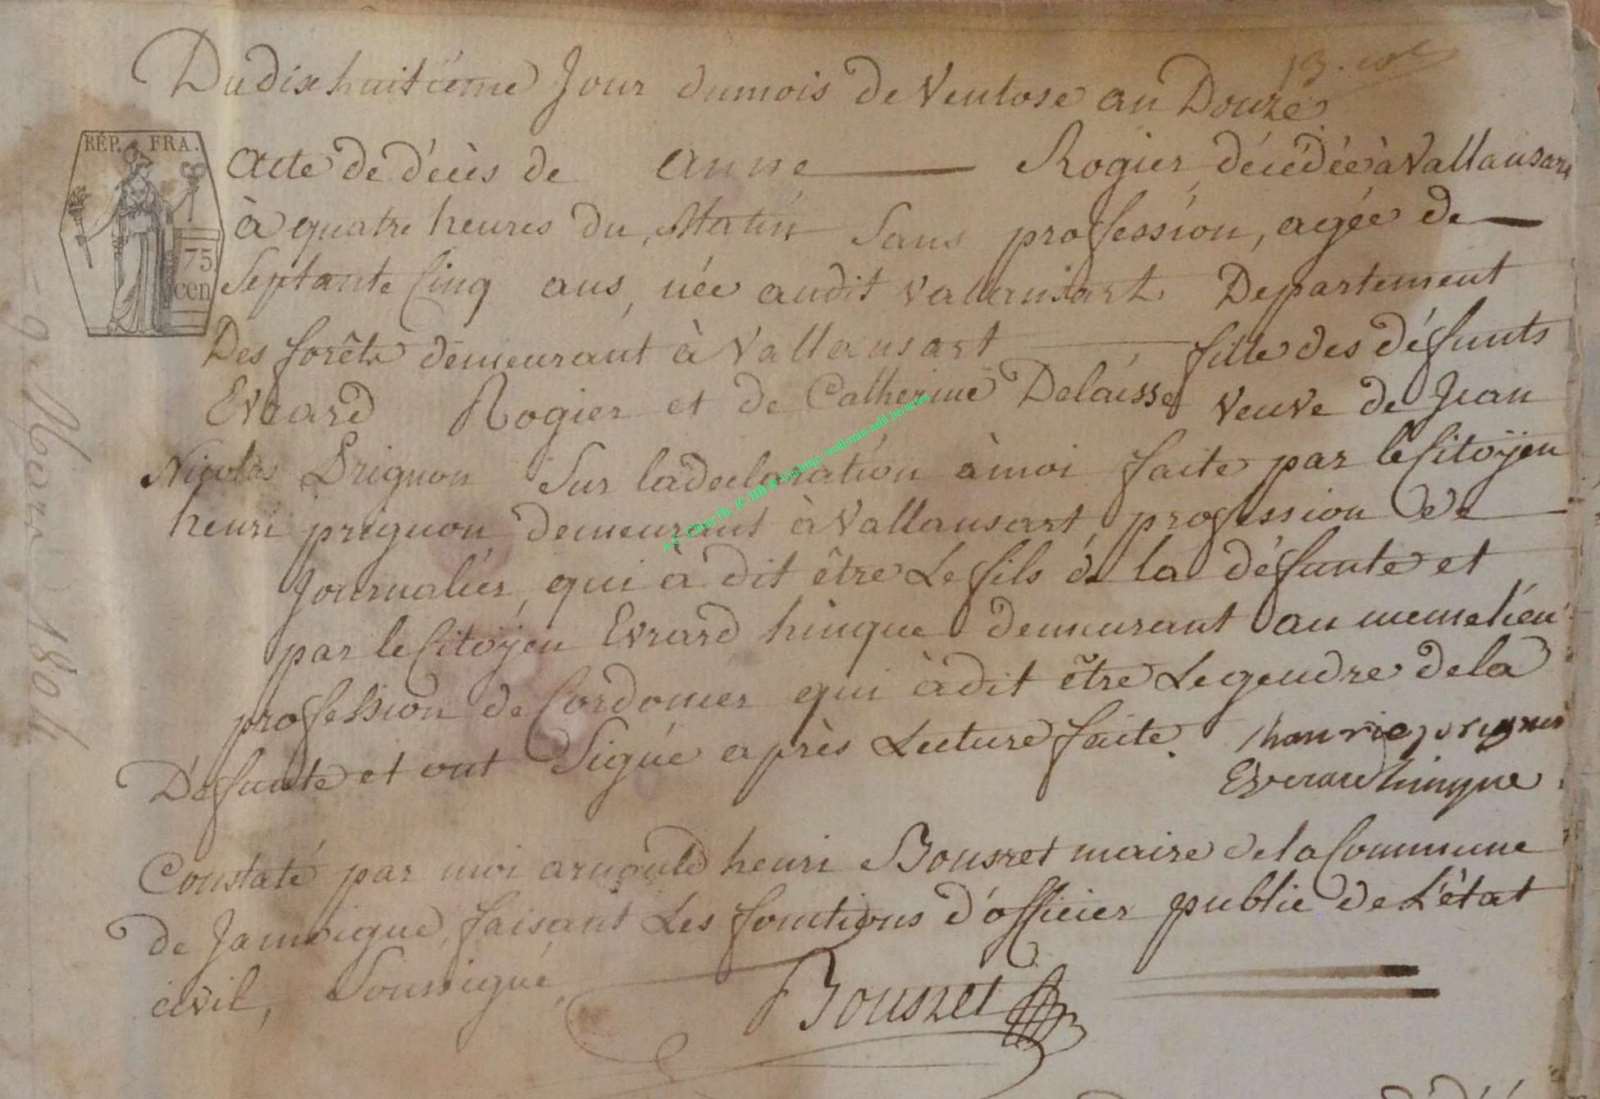 Du dix huitieme Jour du mois de Ventose an Douze
RÉP. FRA.
75
cen
acte de décès de anne Rogier, décédée à Vallansart
à quatre heures du Matin Sans profession, agée de
Septante Cinq ans, née audit Vallansart Departement
Des forêts demeurant à Vallansart fille des défunts
Evrard Rogier et de Catherine Delaisse veuve de Jean
Nicolas Prignon Sur la declaration à moi faite par le Citoÿen
henri prignon demeurant à Vallansart, profession de
Journalier, qui à dit être Le fils de la défunte et
par le Citoÿen Evrard hinque demeurant au meme lieu
profession de Cordonier qui à dit être Le gendre de la
Défunte et ont Signé après Lecture faite.
Everard hinque
Constaté par moi arnould henri Bousret maire de la Commune
de Jamoigne, faisant Les fonctions d'officier public de L'état
civil, Soussigné
Bousret
9 Mars 1804